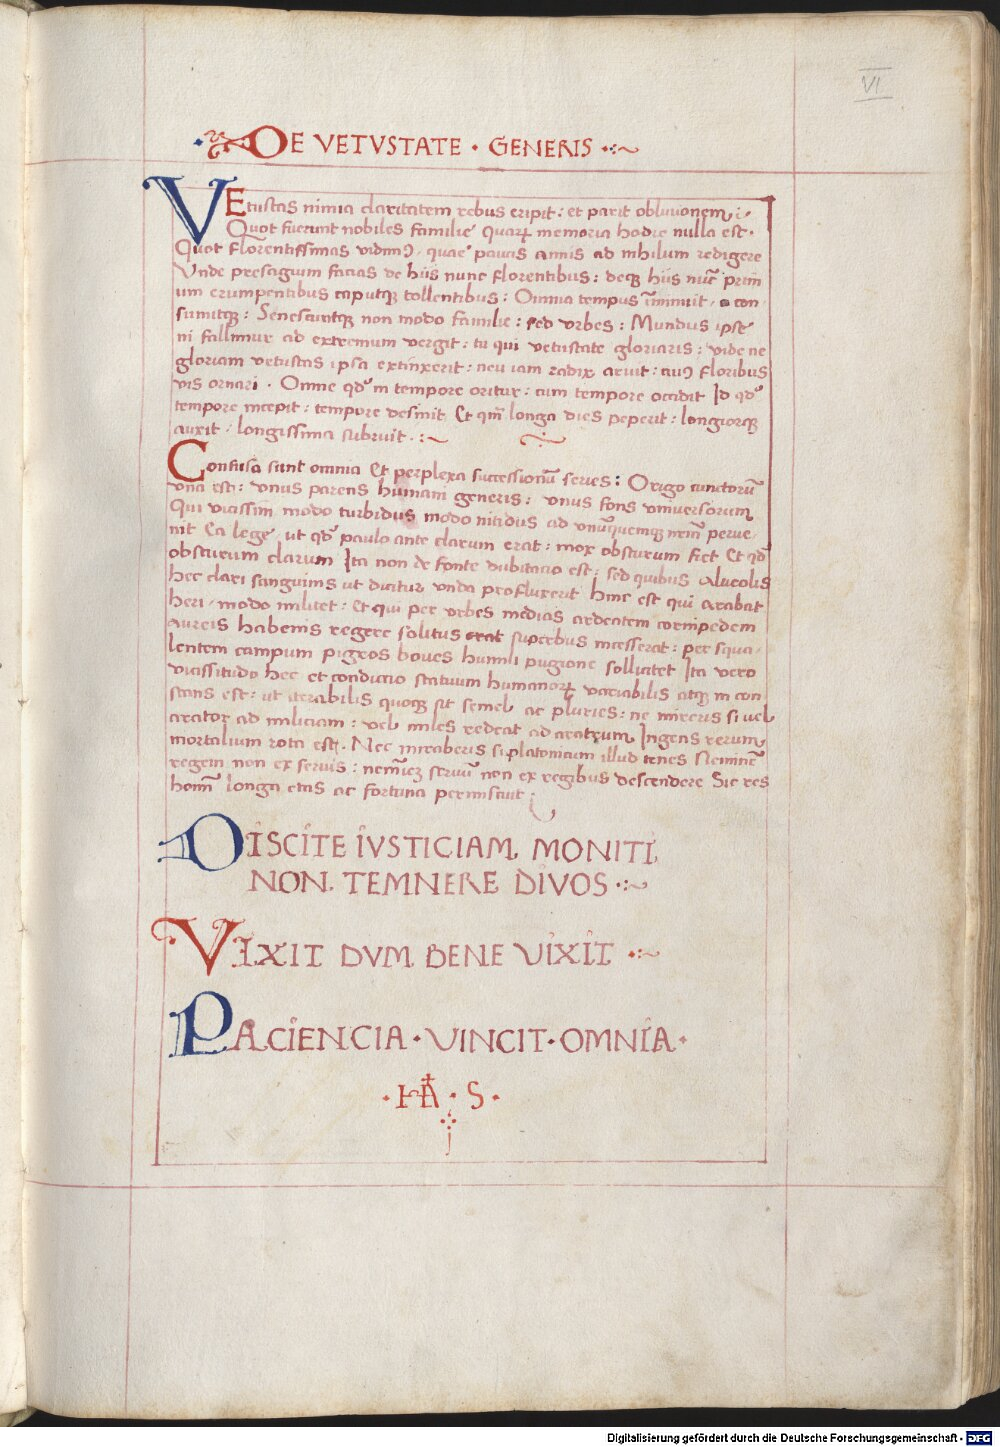 VI
DE VETVSTATE · GENERIS
VEtustas nimia claritatem rebus eripit: et parit oblivionem
Quot fuerunt nobiles familie quarum memoria hodie nulla est.
Quot florentissimas vidimus, quae paucis annis ad nihilum redigere
Unde presagium facias de hiis nunc florentibus: deque hiis nunc prim
um erumpentibus caputque tollentibus: Omnia tempus iminuit, con
sumitque: Senescuntque non modo familie: sed urbes: Mundus ipse
ni fallimur ad extremum vergit: tu qui vetustate gloriaris: vide ne
gloriam vetustas ipsa extinxerit: neu iam radix aruit: cuius floribus
vis ornari. Omne qd in tempore oritur: cum tempore occidit Id qd
tempore incepit: tempore desinit, Et qm longa dies peperit: longiorque
auxit, longissima subruit.
Confusa sunt omnia Et perplexa successionum series: Origo cunctorum
una est: unus parens humani generis: unus fons universorum
Qui vicissim modo turbidus modo nitidus ad unumquemque perve
nit Ea lege, ut qd paulo ante clarum erat: mox obscurum fiet Et qd
obscurum clarum Ita non de fonte dubitacio est: sed quibus alveolis
hec clari sanguinis ut dicitur unda profluxerit hinc est qui arabat
heri, modo militet: Et qui per urbes medias ardentem cornipedem
aureis habenis regere solitus erat superbus incesserat: per squa
lentem campum pigros boves humili pugione sollicitet Ita vero
vicissitudo hec et condicio statuum humanorum variabilis atque in con
stans est: ut iterabilis quoque sit semel ac pluries: ne mireris si vel
arator ad miliciam: vel miles redeat ad aratrum, Ingens rerum
mortalium rota est. Nec miraberis si platonicum illud tenes Neminem
regem non ex servis: neminem servum non ex regibus descendere Sic res
hominum longa etas ac fortuna permiscuit
DISCITE IVSTICIAM, MONITI,
NON, TEMNERE DIVOS
VIXIT DVM BENE VIXIT
PACIENCIA · VINCIT · OMNIA ·
· HA · S ·
Digitalisierung gefördert durch die Deutsche Forschungsgemeinschaft - DFG